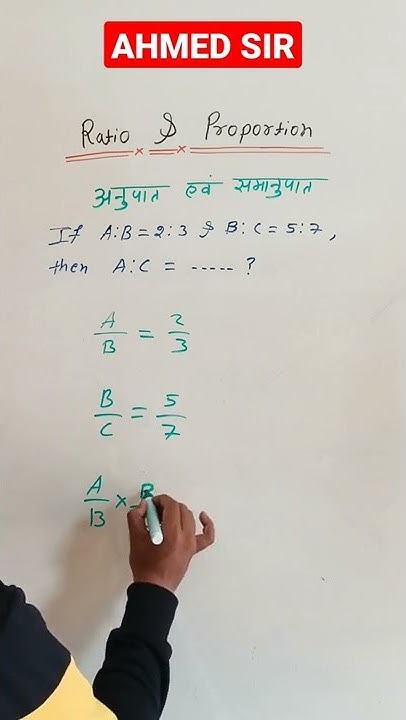 AHMED SIR
Ratio & Proportion
अनुपात एवं समानुपात
If A:B=2:3 & B:C=5:7,
then A:C = ----- ?
A/B = 2/3
B/C = 5/7
A/B × B